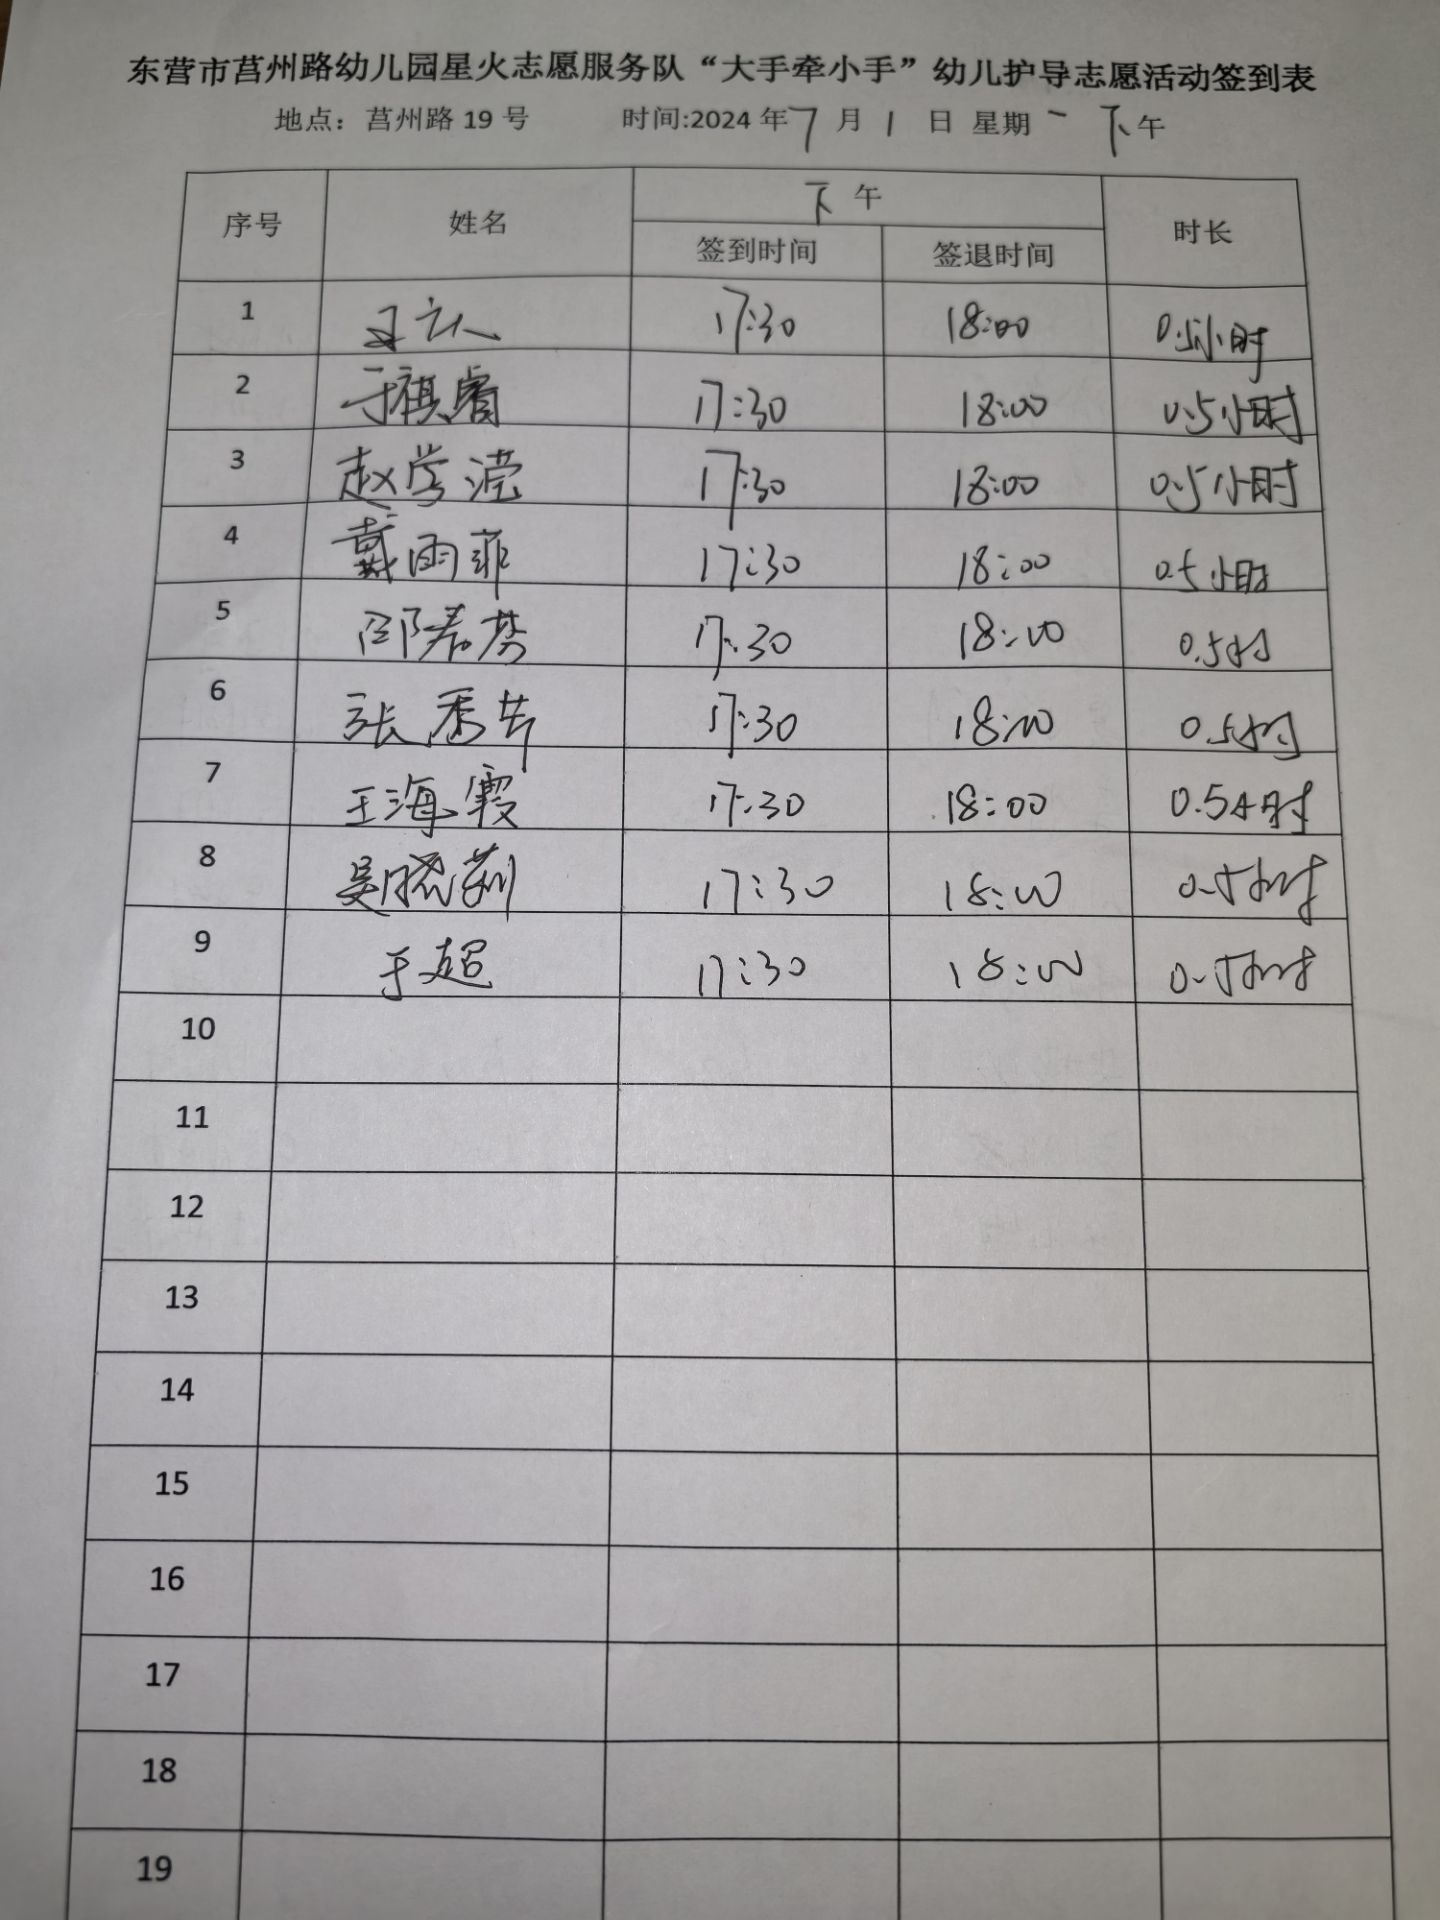 东营市莒州路幼儿园星火志愿服务队“大手牵小手”幼儿护导志愿活动签到表
地点：莒州路 19 号 时间:2024 年 7 月 1 日 星期 一 下午
序号 姓名 下午 时长
签到时间 签退时间
1 17:30 18:00 0.5小时
2 于祺睿 17:30 18:00 0.5小时
3 赵学滢 17:30 18:00 0.5小时
4 戴雨菲 17:30 18:00 0.5小时
5 17:30 18:00 0.5小时
6 张秀芹 17:30 18:00 0.5小时
7 王海霞 17:30 18:00 0.5小时
8 吴晓莉 17:30 18:00 0.5小时
9 于超 17:30 18:00 0.5小时
10
11
12
13
14
15
16
17
18
19